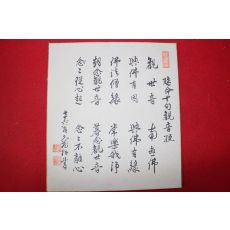 延命十句觀音經
觀世音 南無佛
與佛有因 與佛有緣
佛法僧緣 常樂我淨
朝念觀世音 暮念觀世音
念々從心起 念々不離心